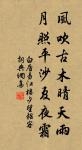 風吹古木晴天雨
月照平沙夏夜霜
白居易江樓夕望招客
胡興國集